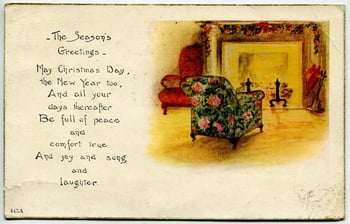 The Season's
Greetings
May Christmas Day,
the New Year too,
And all your
days thereafter
Be full of peace
and
comfort true
And joy and song
and
laughter.
445A